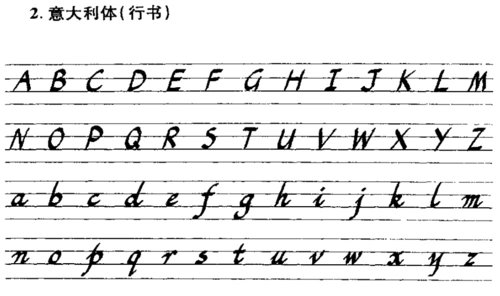 2. 意大利体(行书)
A B C D E F G H I J K L M
N O P Q R S T U V W X Y Z
a b c d e f g h i j k l m
n o p q r s t u v w x y z